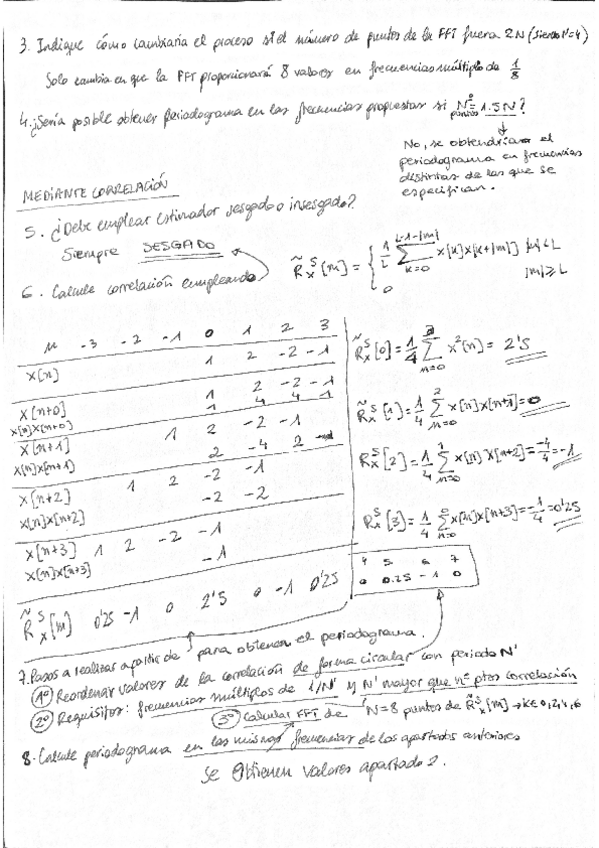 3. Indique cómo cambiaría el proceso si el número de puntos de la FFT fuera 2N (siendo N=4)
Solo cambia en que la FFT proporcionará 8 valores en frecuencias múltiplo de 1/8
4. ¿Sería posible obtener periodograma en las frecuencias propuestas si Nº puntos = 1.5N?
No, se obtendrían el
periodograma en frecuencias
distintas de las que se
especifican.
MEDIANTE CORRELACIÓN
5. ¿Debe emplear estimador sesgado o insesgado?
Siempre SESGADO
6. Calcule correlación empleando
R̃ₓˢ[m] = { 1/L ∑_{k=0}^{L-1-|m|} x[k]x[k+|m|] |m|<L
0 |m|≥L
n -3 -2 -1 0 1 2 3
x[n] 1 2 -2 -1
x[n+0] 1 2 -2 -1
x[n]x[n+0] 1 4 4 1
x[n+1] 1 2 -2 -1
x[n]x[n+1] 2 -4 2
x[n+2] 1 2 -2 -1
x[n]x[n+2] -2 -2
x[n+3] 1 2 -2 -1
x[n]x[n+3] -1
R̃ₓˢ[m] 0'25 -1 0 2'5 0 -1 0'25
R̃ₓˢ[0] = 1/4 ∑_{n=0}^{3} x²(n) = 2'5
R̃ₓˢ[1] = 1/4 ∑_{n=0}^{2} x[n]x[n+1] = 0
R̃ₓˢ[2] = 1/4 ∑_{n=0}^{1} x[n]x[n+2] = -4/4 = -1
R̃ₓˢ[3] = 1/4 ∑_{n=0}^{0} x[n]x[n+3] = -1/4 = 0'25
4 5 6 7
0 0.25 -1 0
7. Pasos a realizar a partir de para obtener el periodograma.
1º Reordenar valores de la correlación de forma circular con periodo N'
2º Requisitos: frecuencias múltiplos de 1/N' y N' mayor que nº ptos correlación
3º Calcular FFT de N=8 puntos de R̃ₓˢ[m] → k=0,2,4,6
8. Calcule periodograma en las mismas frecuencias de los apartados anteriores
Se obtienen valores apartado 2.